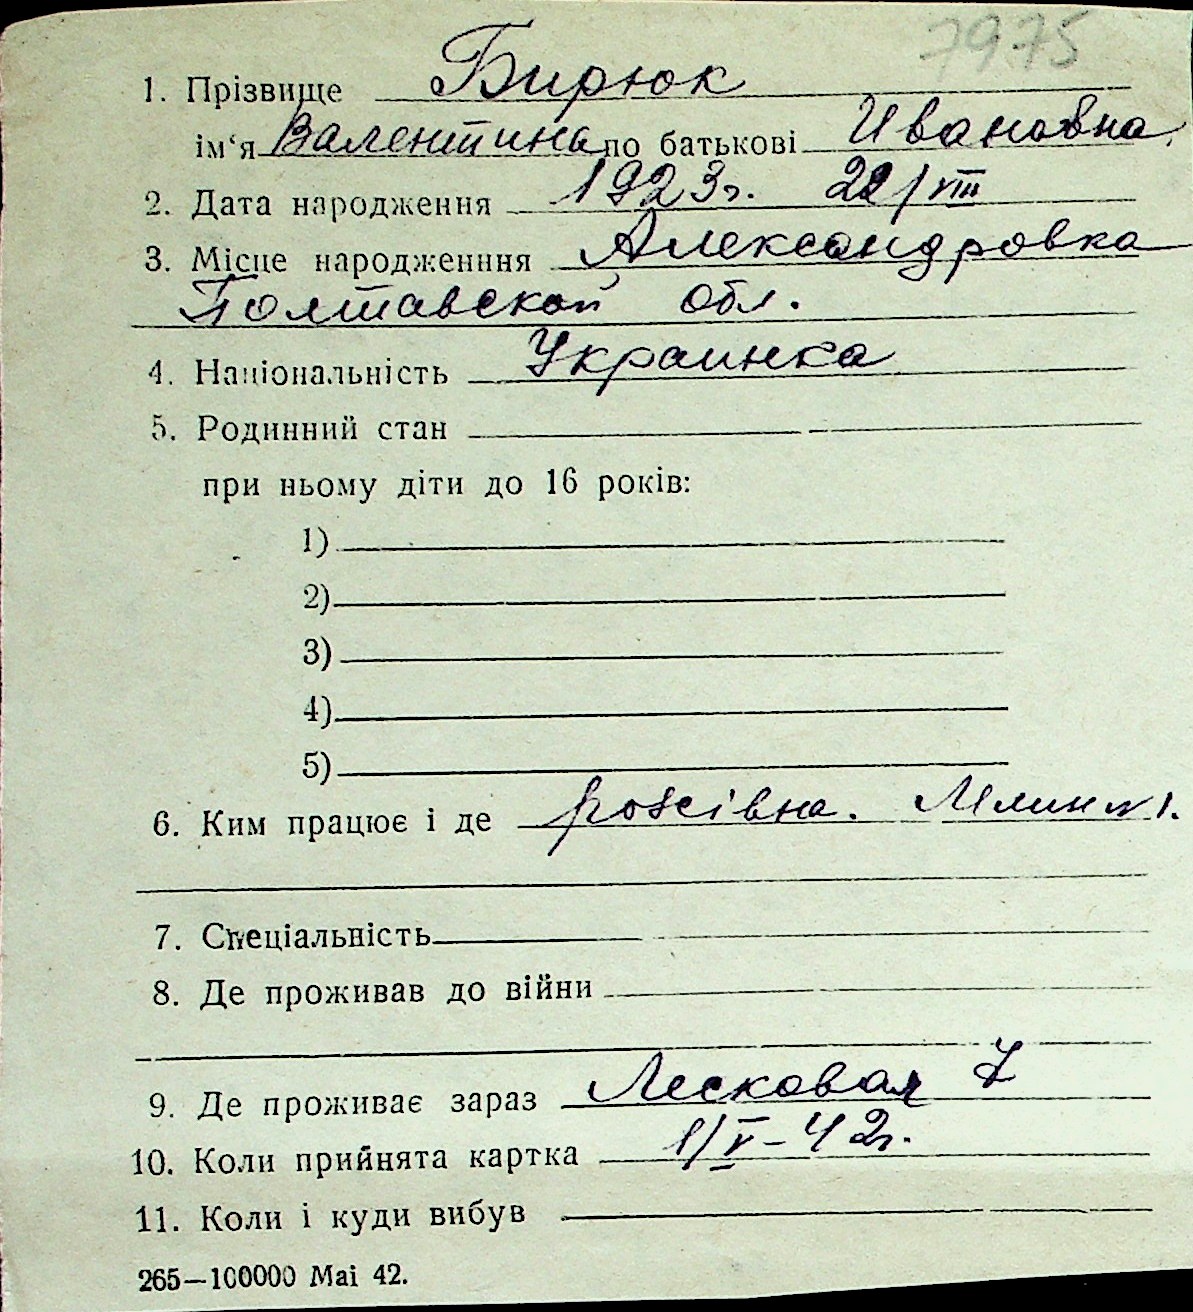 7975
1. Прізвище Бирюк
ім‘я Валентина по батькові Ивановна.
2. Дата народження 1923г. 22/VIII
3. Місце народженння Александровка
Полтавской обл.
4. Національність Украинка
5. Родинний стан
при ньому діти до 16 років:
1)
2)
3)
4)
5)
6. Ким працює і де Млин №1.
7. Спеціальність
8. Де проживав до війни
9. Де проживає зараз Лесковая 7
10. Коли прийнята картка 1/V-42г.
11. Коли і куди вибув
265—100000 Mai 42.